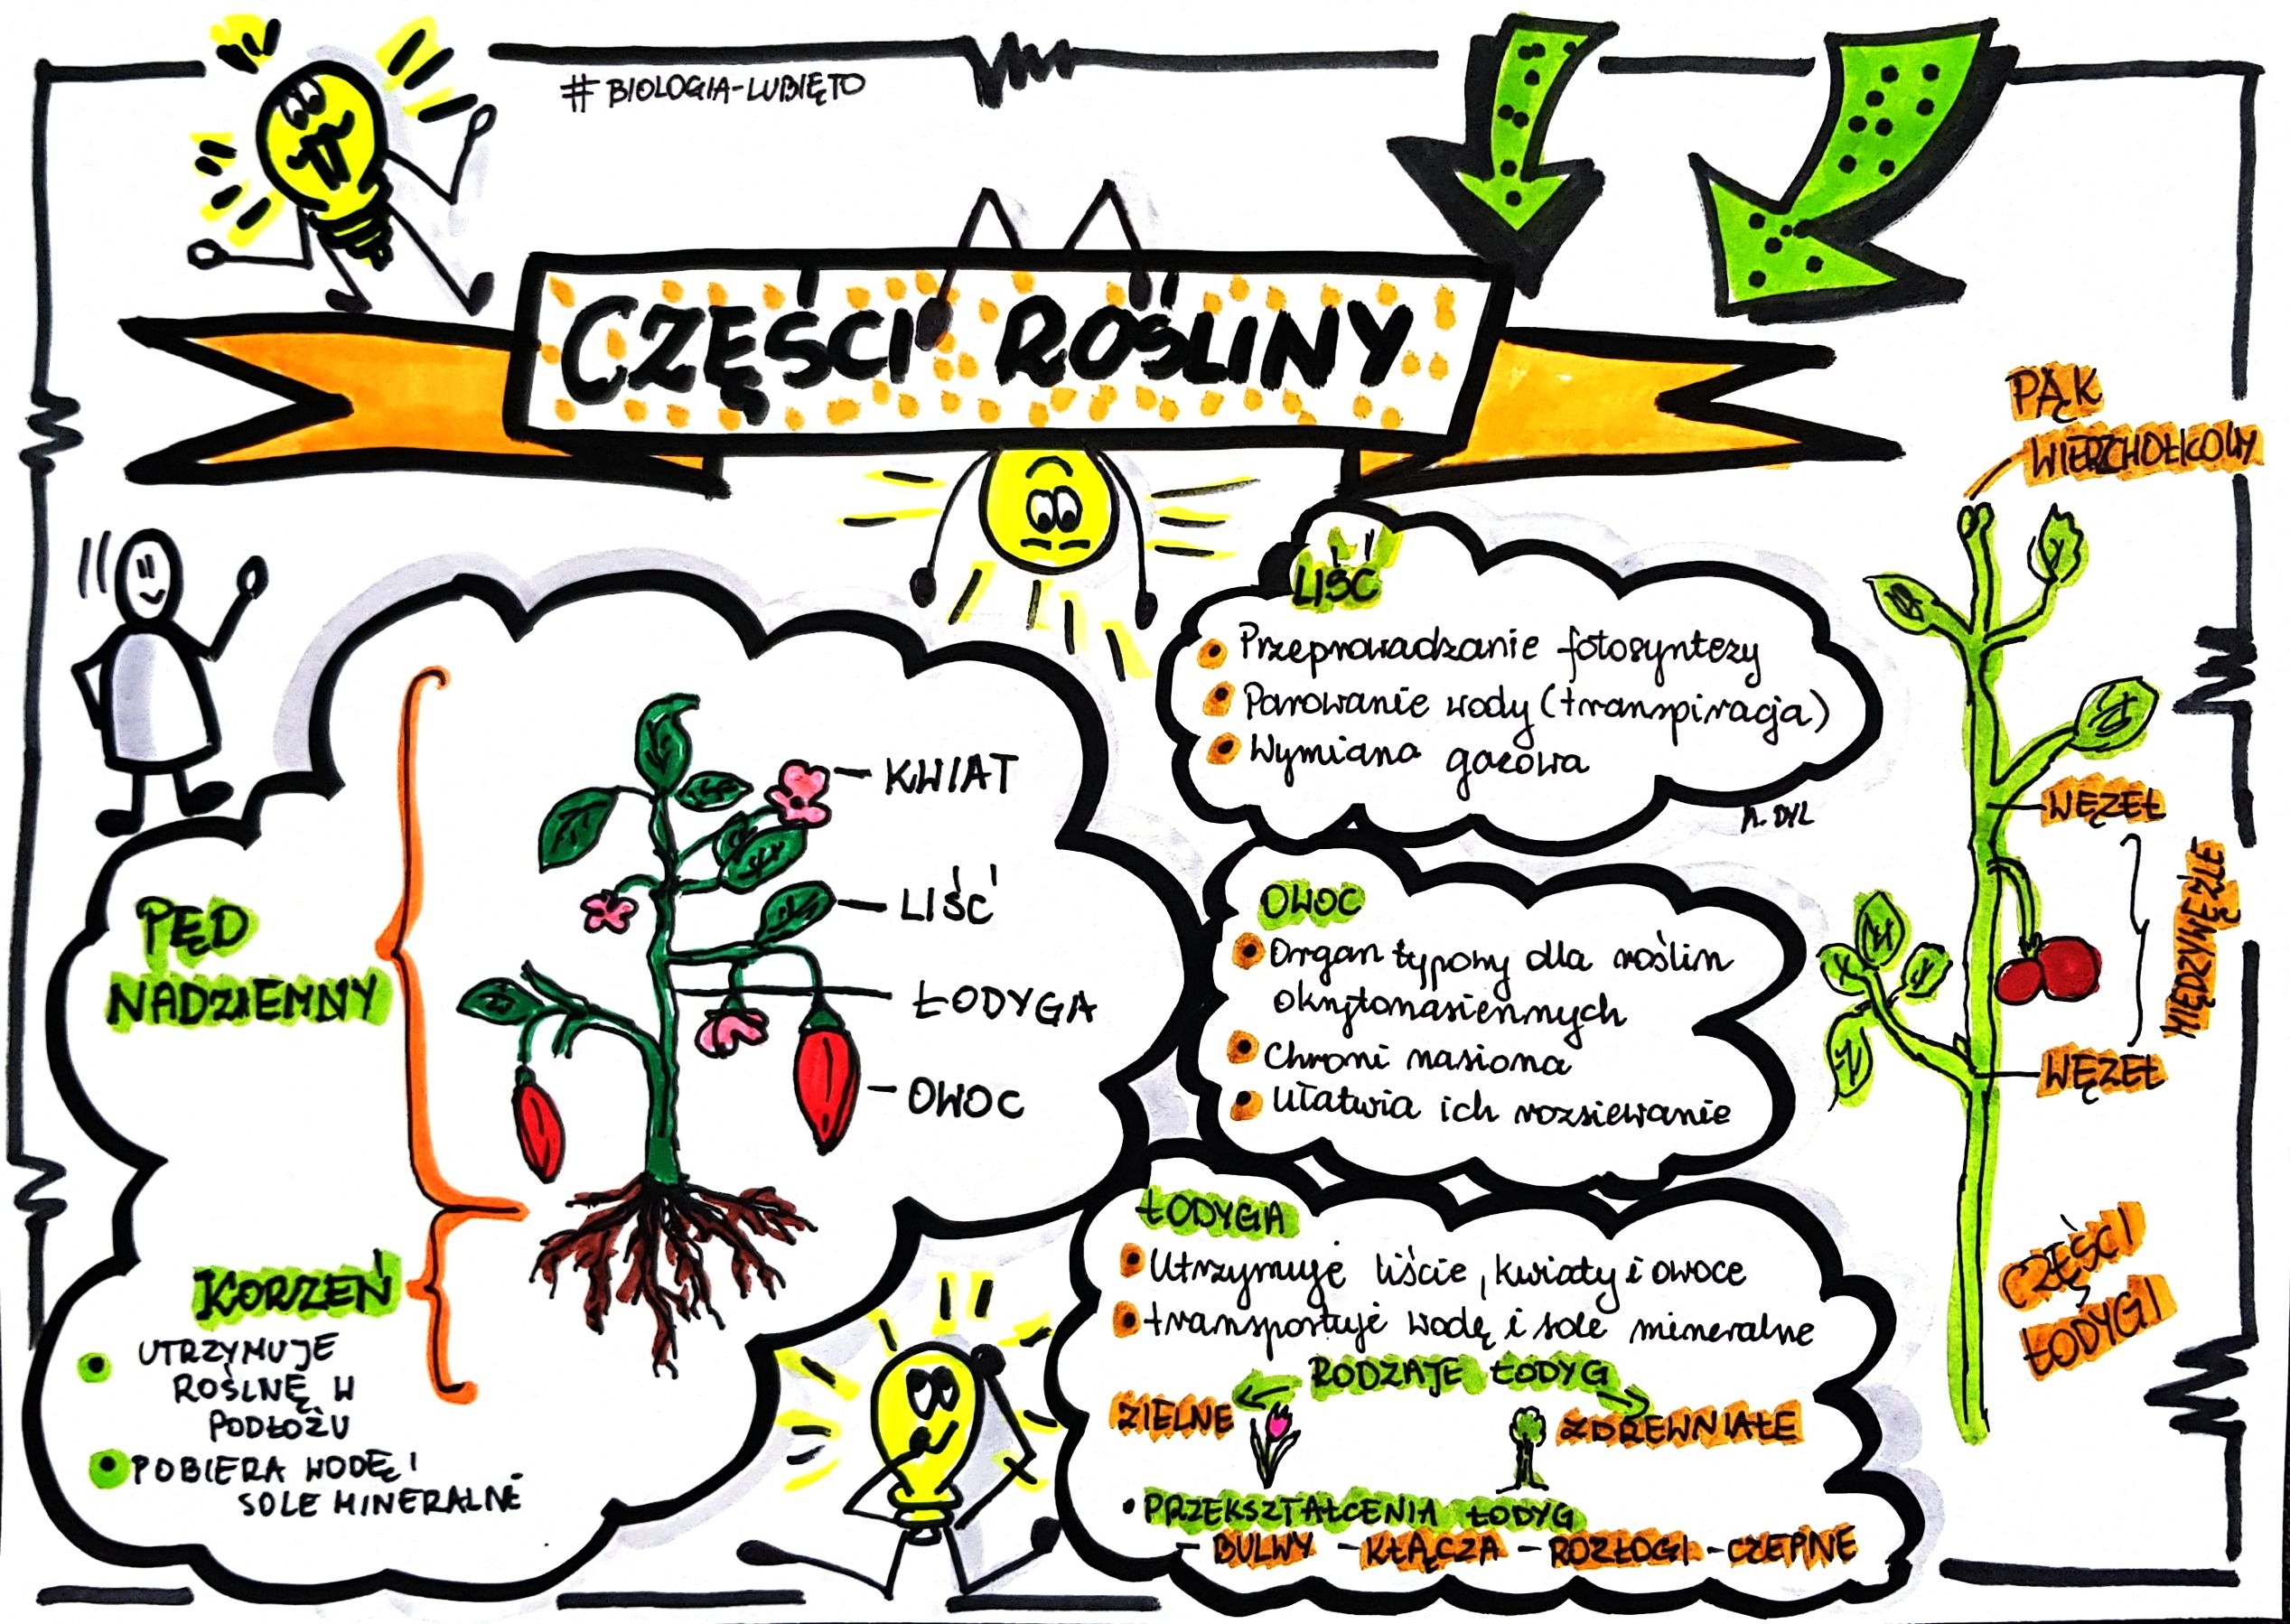 #BIOLOGIA-LUBIĘTO
CZĘŚCI ROŚLINY
PĘD
NADZIEMNY
KORZEŃ
UTRZYMUJE
ROŚLNĘ W
PODŁOŻU
POBIERA WODĘ I
SOLE MINERALNE
KWIAT
LIŚĆ
ŁODYGA
OWOC
LIŚĆ
Przeprowadzanie fotosyntezy
Parowanie wody (transpiracja)
Wymiana gazowa
A. DYL
OWOC
Organ typowy dla roślin
okrytonasiennych
Chroni nasiona
Ułatwia ich rozsiewanie
ŁODYGA
Utrzymuje liście, kwiaty i owoce
transportuje wodę i sole mineralne
RODZAJE ŁODYG
ZIELNE
ZDREWNIAŁE
PRZEKSZTAŁCENIA ŁODYG
- BULWY - KŁĄCZA - ROZŁOGI - CZEPNE
PĄK
WIERZCHOŁKOWY
WĘZEŁ
MIĘDZYWĘŹLE
WĘZEŁ
CZĘŚCI
ŁODYGI